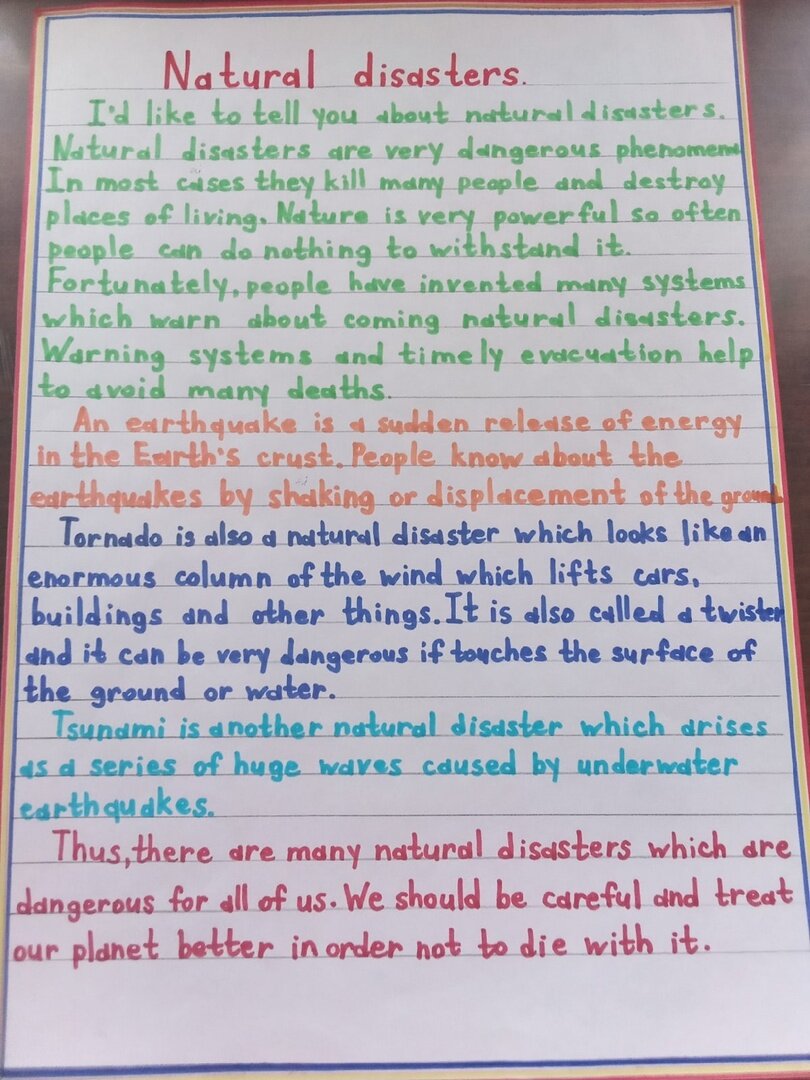 Natural disasters.
I'd like to tell you about natural disasters.
Natural disasters are very dangerous phenomena
In most cases they kill many people and destroy
places of living. Nature is very powerful so often
people can do nothing to withstand it.
Fortunately, people have invented many systems
which warn about coming natural disasters.
Warning systems and timely evacuation help
to avoid many deaths.
An earthquake is a sudden release of energy
in the Earth's crust. People know about the
earthquakes by shaking or displacement of the ground
Tornado is also a natural disaster which looks like an
enormous column of the wind which lifts cars,
buildings and other things. It is also called a twister
and it can be very dangerous if touches the surface of
the ground or water.
Tsunami is another natural disaster which arises
as a series of huge waves caused by underwater
earthquakes.
Thus, there are many natural disasters which are
dangerous for all of us. We should be careful and treat
our planet better in order not to die with it.